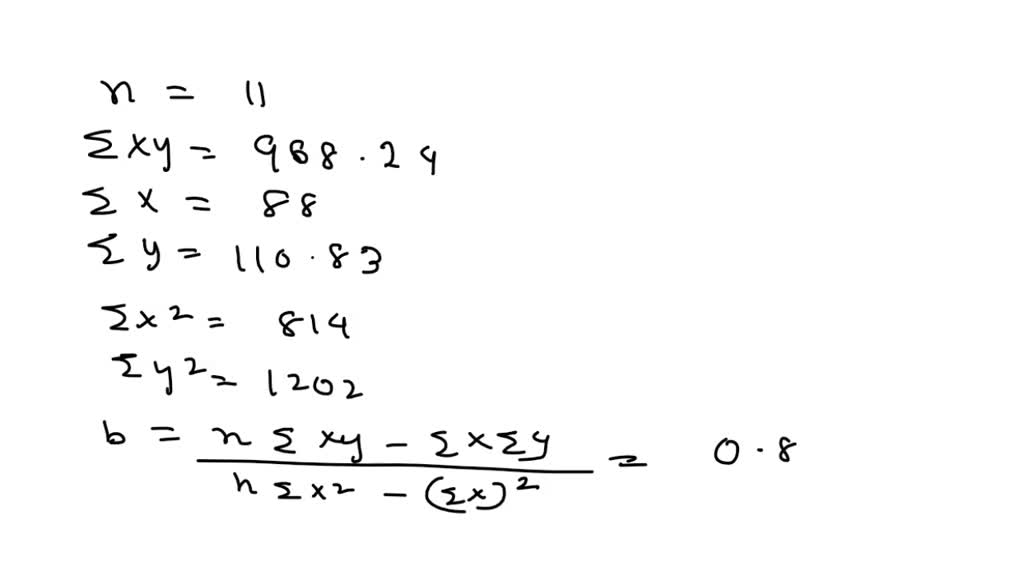 n = 11
Σxy = 988.24
Σx = 88
Σy = 110.83
Σx² = 814
Σy² = 1202
b = (n Σxy - ΣxΣy) / (n Σx² - (Σx)²) = 0.8